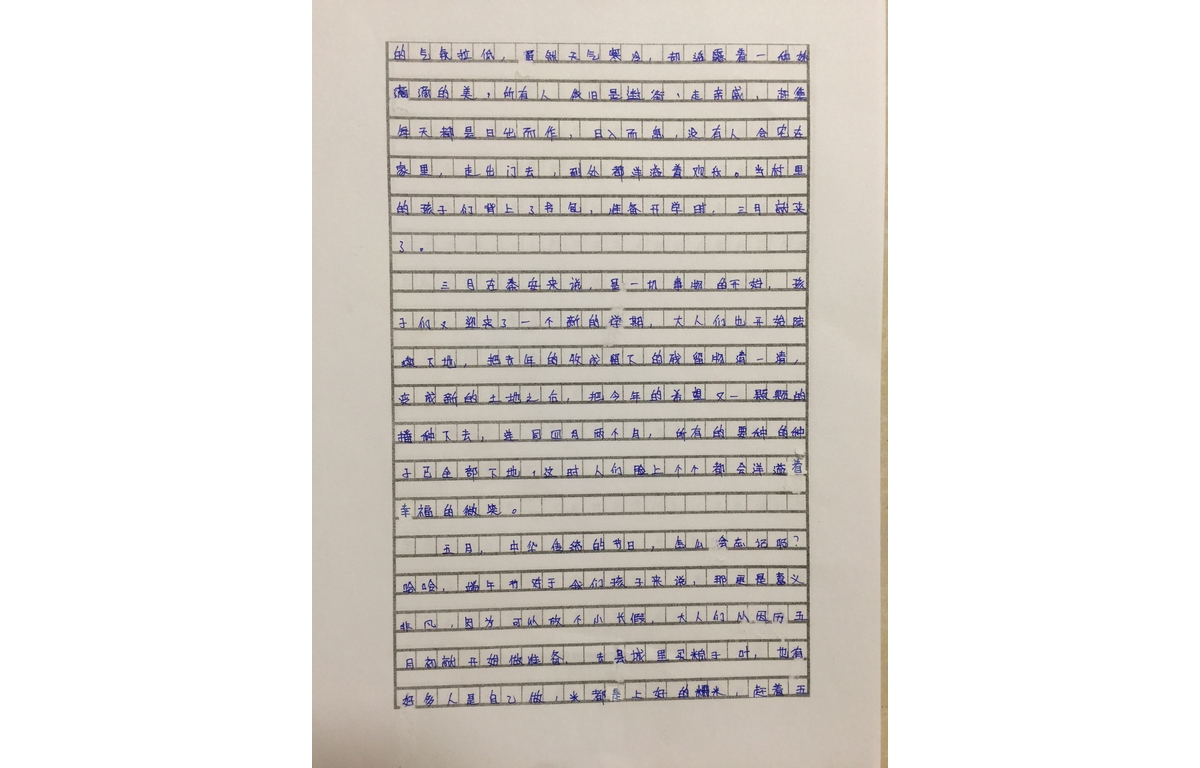 的气氛拉低，虽然天气寒冷，却透露着一种
满满的美，所有人依旧是逛街，走亲戚，赶集
每天都是日出而作，日入而息，没有人会宅在
家里，走出门去，到处都洋溢着欢乐。当村里
的孩子们背上了书包，准备开学时，三月就来
了。
三月在泰安来说，是一切事物的开始，孩
子们又迎来了一个新的学期，大人们也开始陆
续下地，把去年的收成留下的残留物清一清，
变成新的土地之后，把今年的希望又一颗颗的
播种下去，连同四月两个月，所有的要种的种
子已全部下地，这时人们脸上个个都会洋溢着
幸福的微笑。
五月，中华传统的节日，怎么会忘记呢？
哈哈，端午节对于我们孩子来说，那更是意义
非凡，因为可以放个小长假，大人们从农历五
月初就开始做准备，去县城里买粽子叶，也有
好多人是自己做，米都是上好的糯米，赶着五